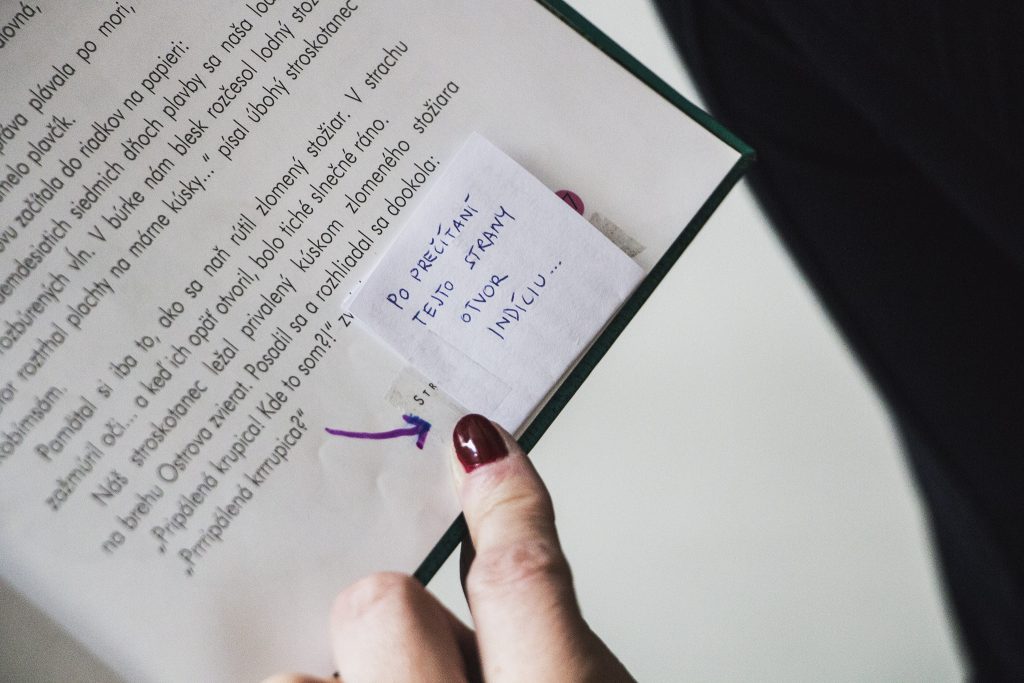 plávala po mori,
plavčík.
začítala do riadkov na papieri:
siedmich dňoch plavby sa naša
rozbúrených vĺn. V búrke nám blesk rozčesol lodný
roztrhal plachty na márne kúsky...“ písal úbohý stroskotanec
Pamätal si iba to, ako sa naň rútil zlomený stožiar. V strachu
zažmúril oči... a keď ich opäť otvoril, bolo tiché slnečné ráno.
Náš stroskotanec ležal privalený kúskom zlomeného stožiara
na brehu Ostrova zvierat. Posadil sa a rozhliadal sa dookola:
„Pripálená krupica! Kde to som?!“
„Prrripálená krrrupica?“
PO PREČÍTANÍ
TEJTO STRANY
OTVOR
INDÍCIU...
STR